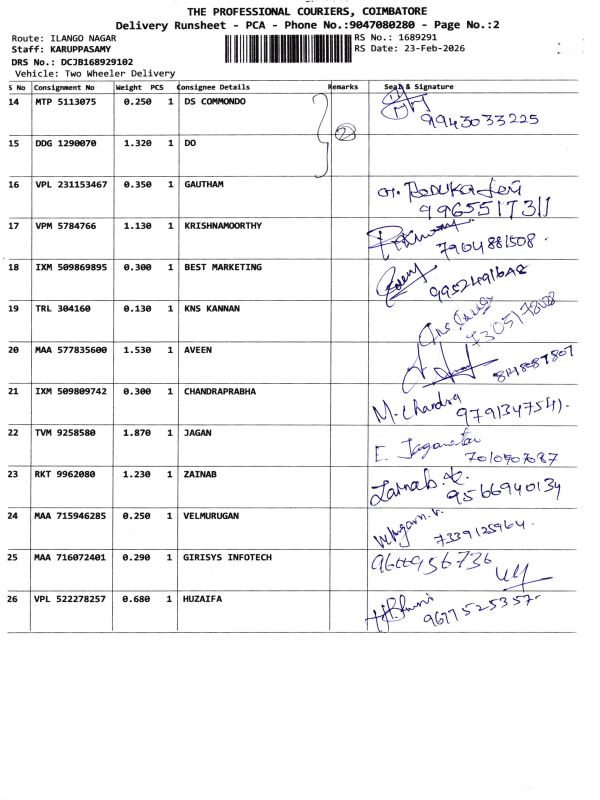 THE PROFESSIONAL COURIERS, COIMBATORE
Delivery Runsheet - PCA - Phone No.:9047080280 - Page No.:2
Route: ILANGO NAGAR RS No.: 1689291
Staff: KARUPPASAMY RS Date: 23-Feb-2026
DRS No.: DCJB168929102
Vehicle: Two Wheeler Delivery
S No Consignment No Weight PCS Consignee Details Remarks Seal & Signature
14 MTP 5113075 0.250 1 DS COMMONDO
2 9943033225
15 DDG 1290070 1.320 1 DO
16 VPL 231153467 0.350 1 GAUTHAM
9965517311
17 VPM 5784766 1.130 1 KRISHNAMOORTHY
7904881508.
18 IXM 509869895 0.300 1 BEST MARKETING
19 TRL 304160 0.130 1 KNS KANNAN
20 MAA 577835600 1.530 1 AVEEN
21 IXM 509809742 0.300 1 CHANDRAPRABHA
M. Chandra
9791347541.
22 TVM 9258580 1.870 1 JAGAN
E.
23 RKT 9962080 1.230 1 ZAINAB
9566940134
24 MAA 715946285 0.250 1 VELMURUGAN
7339125964.
25 MAA 716072401 0.290 1 GIRISYS INFOTECH
26 VPL 522278257 0.680 1 HUZAIFA
9677525357.